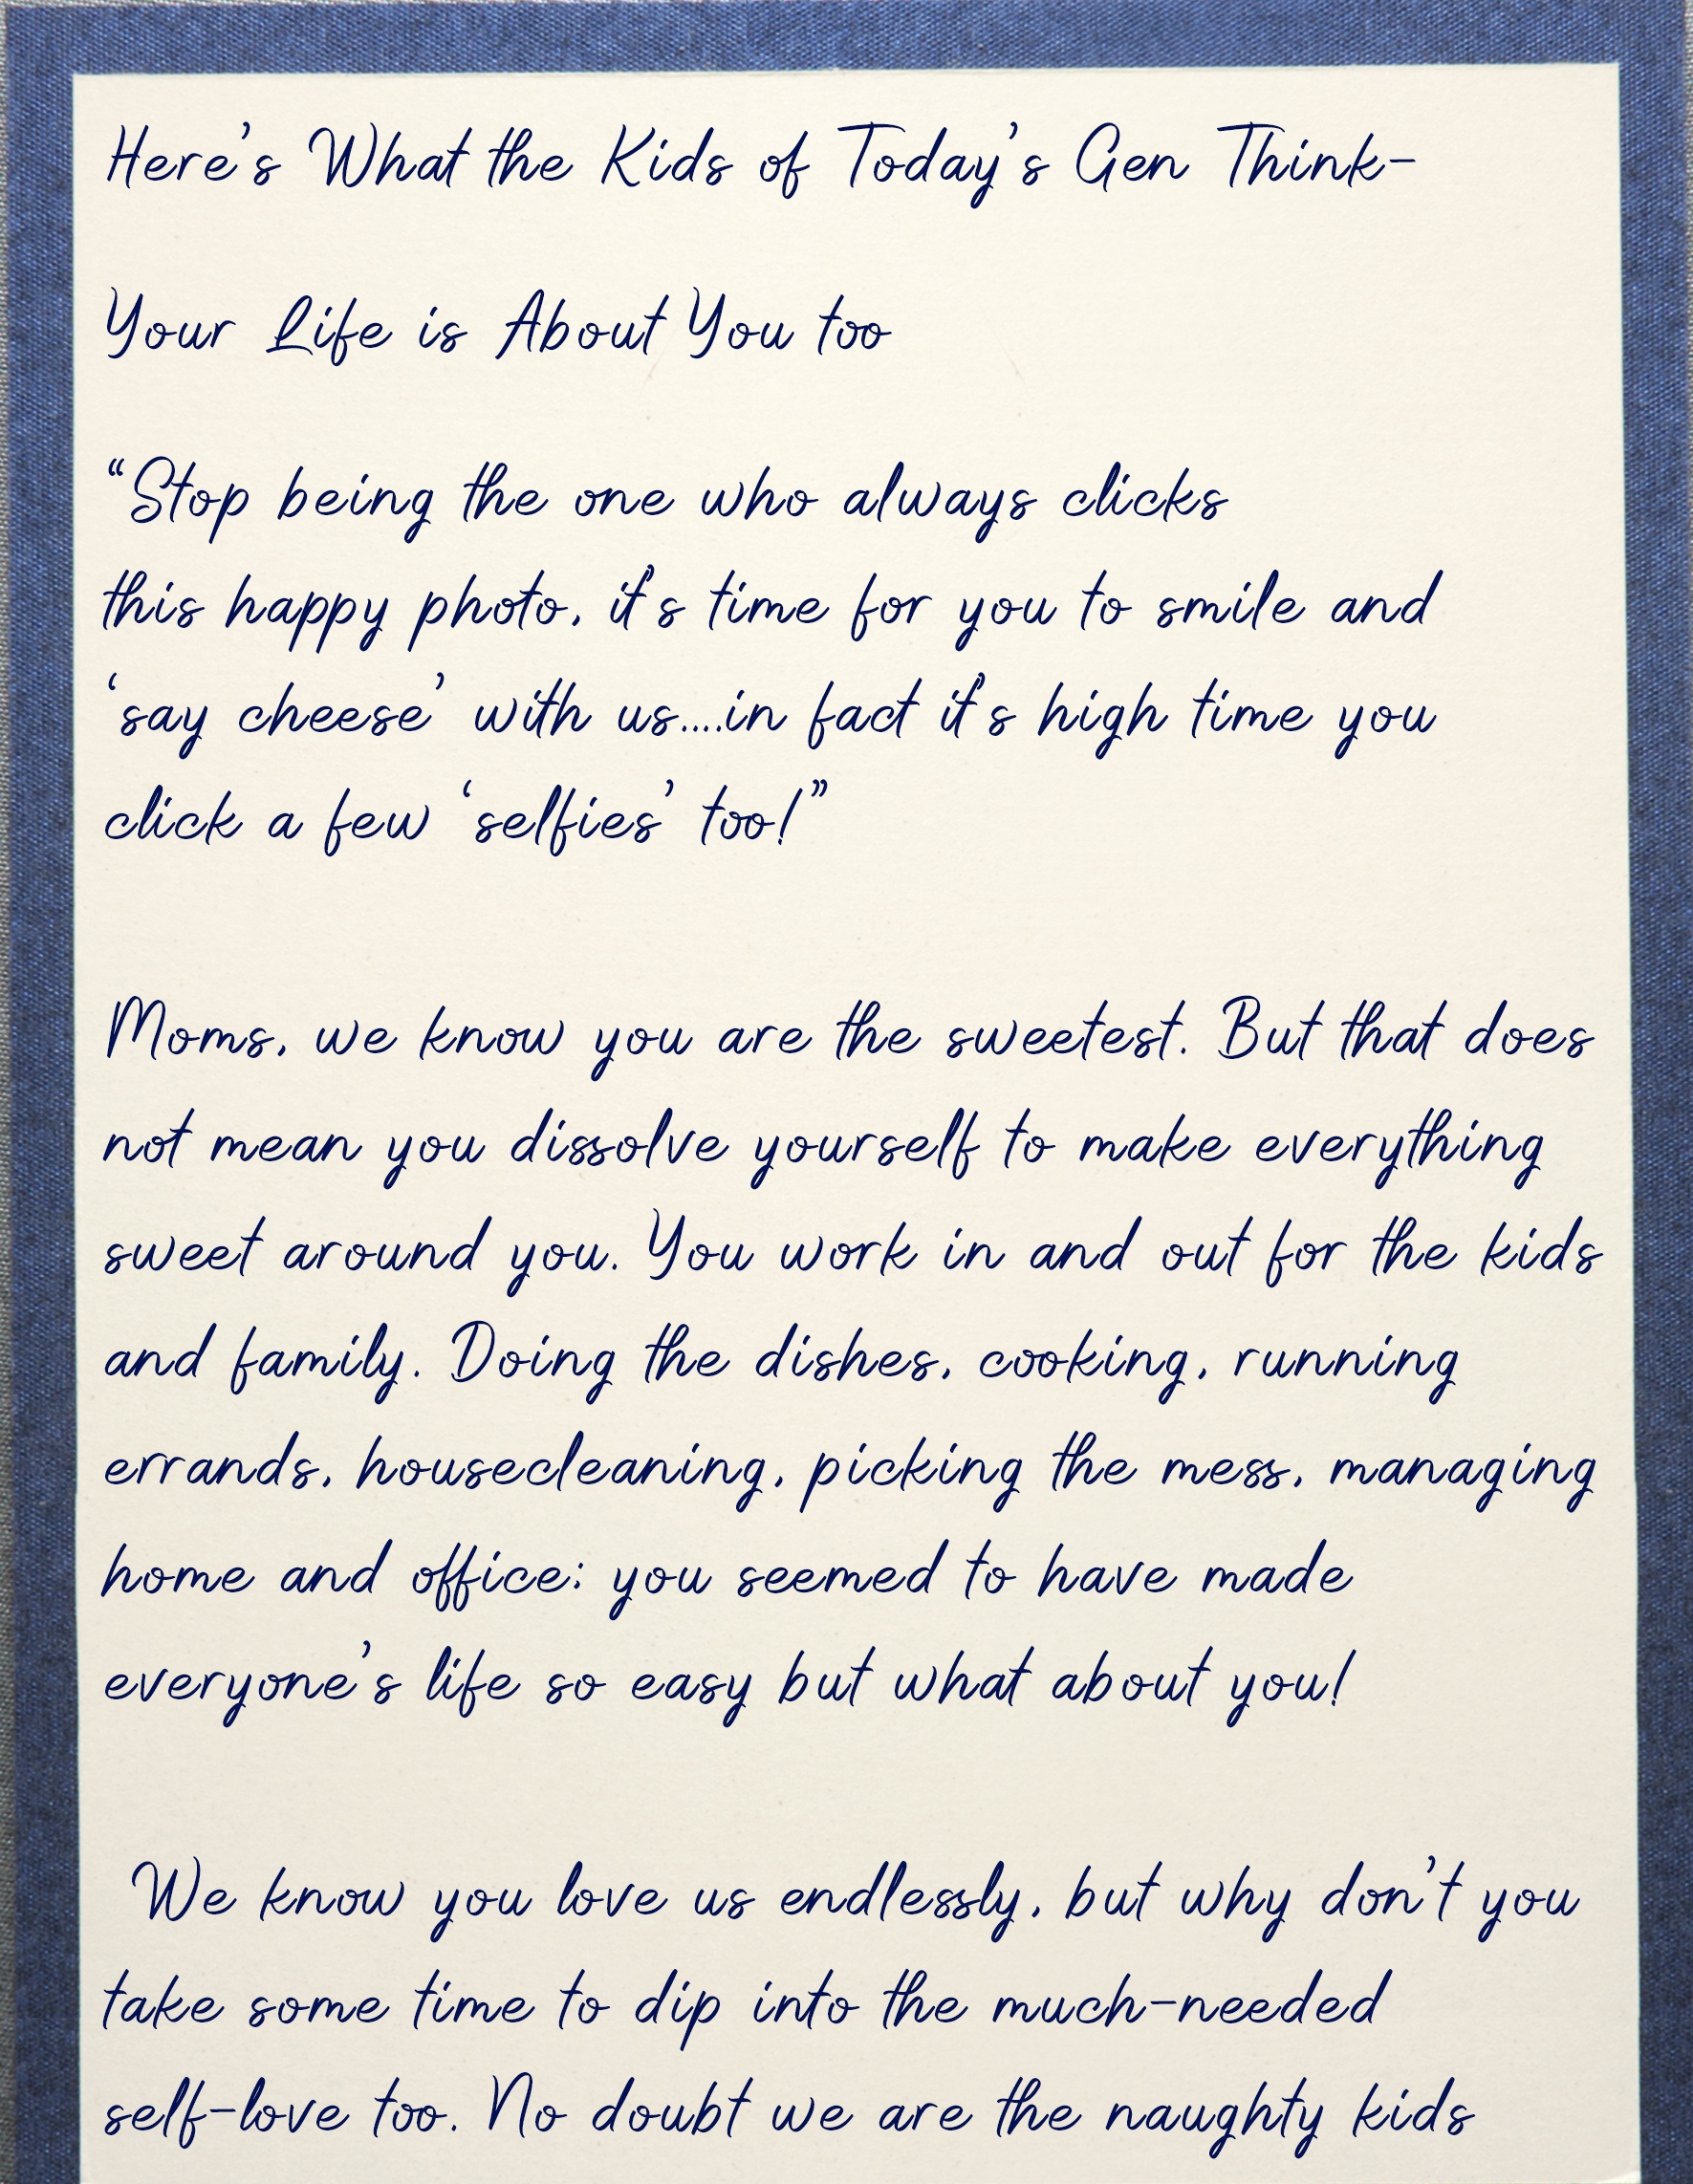 Here's What the Kids of Today's Gen Think-
Your Life is About You too
“Stop being the one who always clicks
this happy photo, it's time for you to smile and
‘say cheese’ with us....in fact it's high time you
click a few ‘selfies’ too!”
Moms, we know you are the sweetest. But that does
not mean you dissolve yourself to make everything
sweet around you. You work in and out for the kids
and family. Doing the dishes, cooking, running
errands, housecleaning, picking the mess, managing
home and office; you seemed to have made
everyone's life so easy but what about you!
We know you love us endlessly, but why don't you
take some time to dip into the much-needed
self-love too. No doubt we are the naughty kids